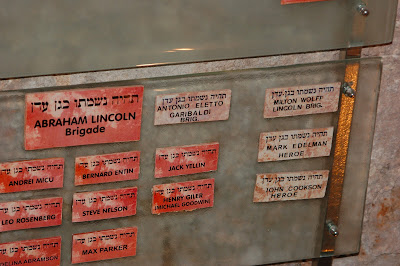 תהיה נשמתו בגן עדן
ABRAHAM LINCOLN
Brigade
תהיה נשמתו בגן עדן
ANTONIO ELETTO
GARIBALBI
BRIG.
תהיה נשמתו בגן עדן
MILTON WOLFF
LINCOLN BRIG.
תהיה נשמתו בגן עדן
MARK EDELMAN
HEROE
תהיה נשמתו בגן עדן
ANDREI MICU
תהיה נשמתו בגן עדן
BERNARD ENTIN
תהיה נשמתו בגן עדן
JACK YELLIN
תהיה נשמתו בגן עדן
JOHN COOKSON
HEROE
תהיה נשמתו בגן עדן
LEO ROSENBERG
תהיה נשמתו בגן עדן
STEVE NELSON
תהיה נשמתו בגן עדן
HENRY GILER
(MICHAEL GOODWIN)
תהיה נשמתו בגן עדן
ABRAMSON
תהיה נשמתו בגן עדן
MAX PARKER